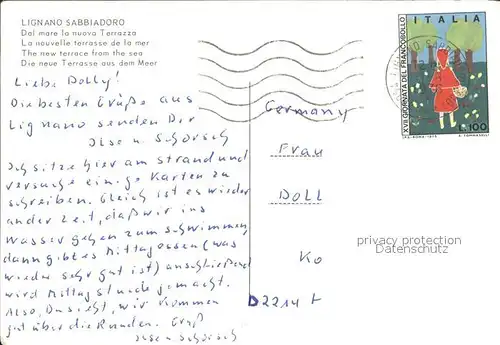 LIGNANO SABBIADORO
Dal mare la nuova Terrazza
La nouvelle terrasse de la mer
The new terrace from the sea
Die neue Terrasse aus dem Meer
ITALIA
XVII GIORNATA DEL FRANCOBOLLO
L.100
Liebe Dolly!
Die besten Grüße aus
Lignano senden Dir
Ilse u. Schorsch
Ich sitze hier am Strand und
versuche einige Karten zu
schreiben. Gleich ist es wieder
an der Zeit, daß wir ins
Wasser gehen zum schwimmen,
dann gibt es Mittagessen (was
wieder sehr gut ist) anschließend
wird Mittagstunde gemacht.
Also, Du siehst, wir kommen
gut über die Runden. Gruß
Ilse u. Schorsch
Germany
Frau
Doll
Ko
D2214
privacy protection
Datenschutz